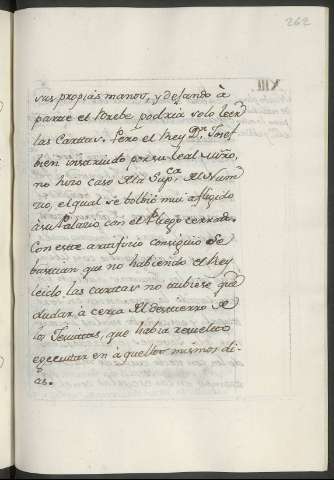 262
XIII
sus propias manos, y dejando à
parte el Brebe podria solo leer
las Cartas. Pero el Rey Dn. Josef
bien instruido por su leal
no hizo caso de la Supca. del Nun-
cio, el qual se bolbió mui afligido
à su Palacio con el Pliego cerrado.
Con este artificio consiguió Se-
bastian que no habiendo el Rey
leido las cartas no hubiese que
dudar à cerca del destierro de
los Jesuitas, que habia resuelto
egecutar en àquellos mismos di-
as.